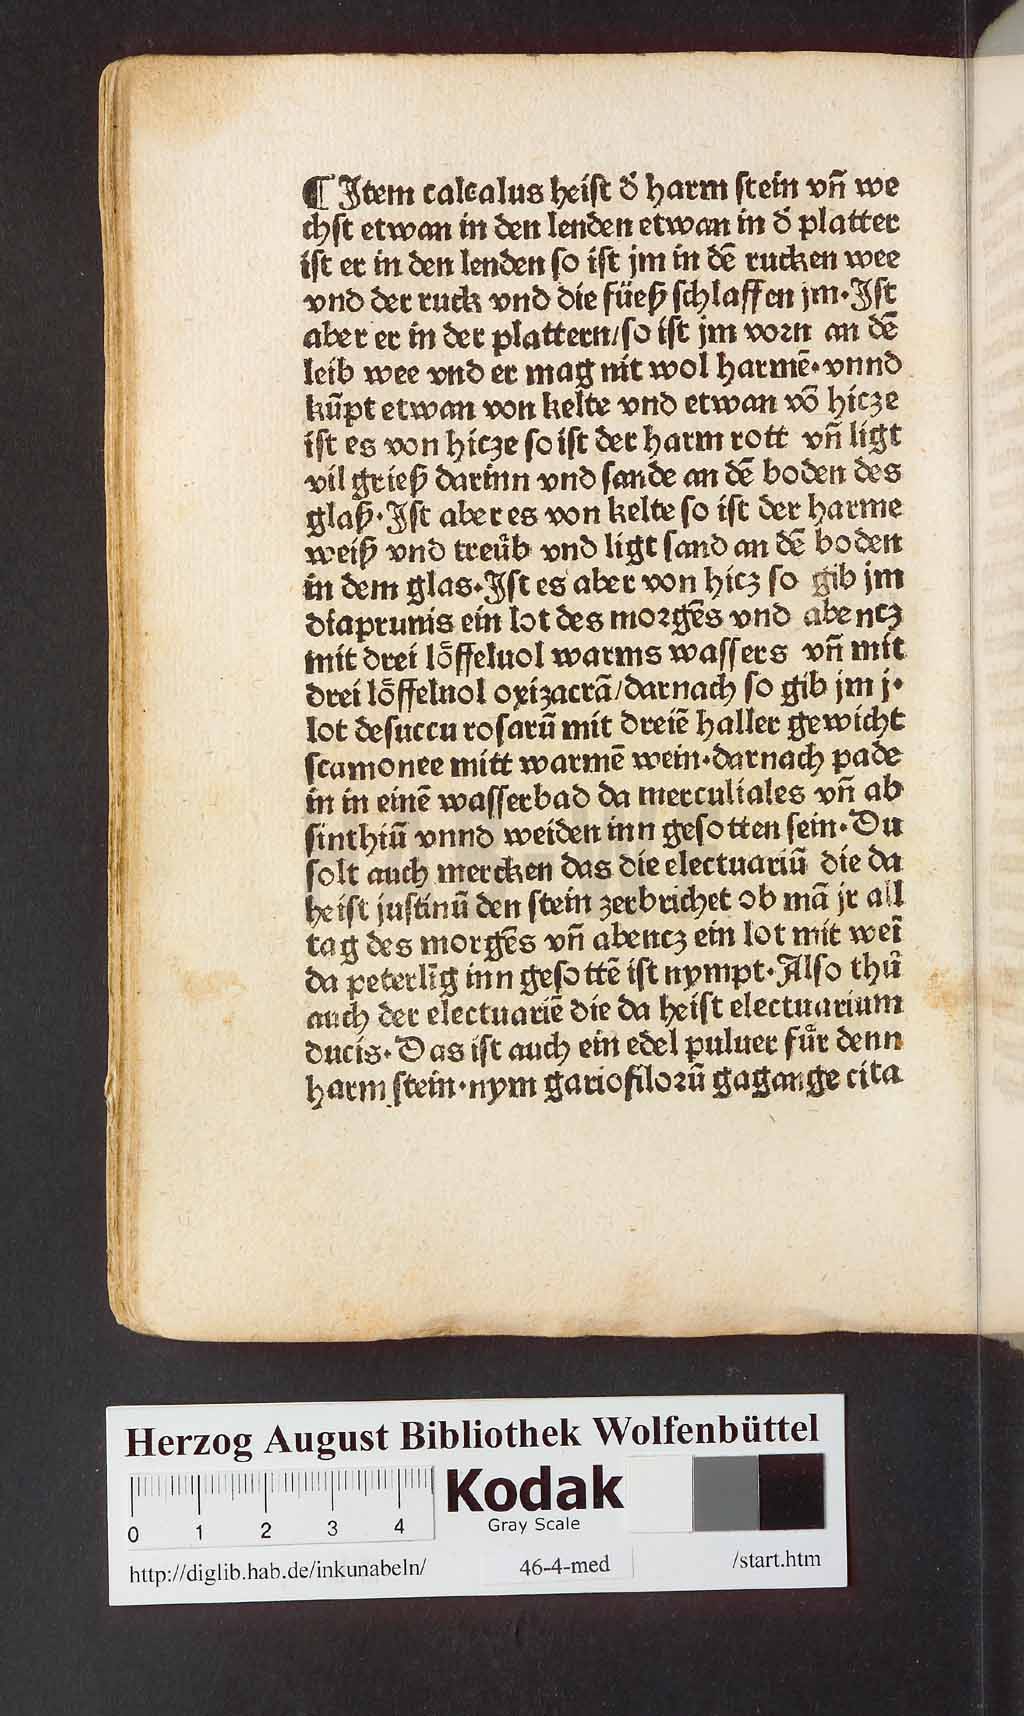 ¶ Item calcalus heist d̕ harm stein vñ we
chst etwan in den lenden etwan in d̕ platter
ist er in den lenden so ist jm in dẽ rucken wee
vnd der ruck vnd die füeß schlaffen jm·Ist
aber er in der plattern/so ist jm vorn an dẽ
leib wee vnd er mag nit wol harmẽ·vnnd
kũpt etwan von kelte vnd etwan võ hicze
ist es von hicze so ist der harm rott vñ ligt
vil grieß darinn vnd sande an dẽ boden des
glaß·Ist aber es von kelte so ist der harme
weiß vnd treuͤb vnd ligt sand an dẽ boden
in dem glas·Ist es aber von hicz so gib jm
diaprunis ein lot des morgẽs vnd abencz
mit drei loͤffeluol warms wassers vñ mit
drei loͤffeluol oxizacrã/darnach so gib jm j·
lot desuccu rosarũ mit dreiẽ haller gewicht
scamonee mitt warmẽ wein·darnach pade
in in einẽ wasserbad da merculiales vñ ab
sinthiũ vnnd weiden inn gesotten sein·Du
solt auch mercken das die electuariũ die da
heist justinũ den stein zerbrichet ob mã jr all
tag des morgẽs vñ abencz ein lot mit weĩ
da peterlĩg inn gesottẽ ist nympt·Also thuͦ
auch der electuariẽ die da heist electuarium
ducis·Das ist auch ein edel puluer fuͤr denn
harm stein·nym gariofilorũ gagange cita
Herzog August Bibliothek Wolfenbüttel
0 1 2 3 4
Kodak
Gray Scale
http://diglib.hab.de/inkunabeln/ 46-4-med /start.htm